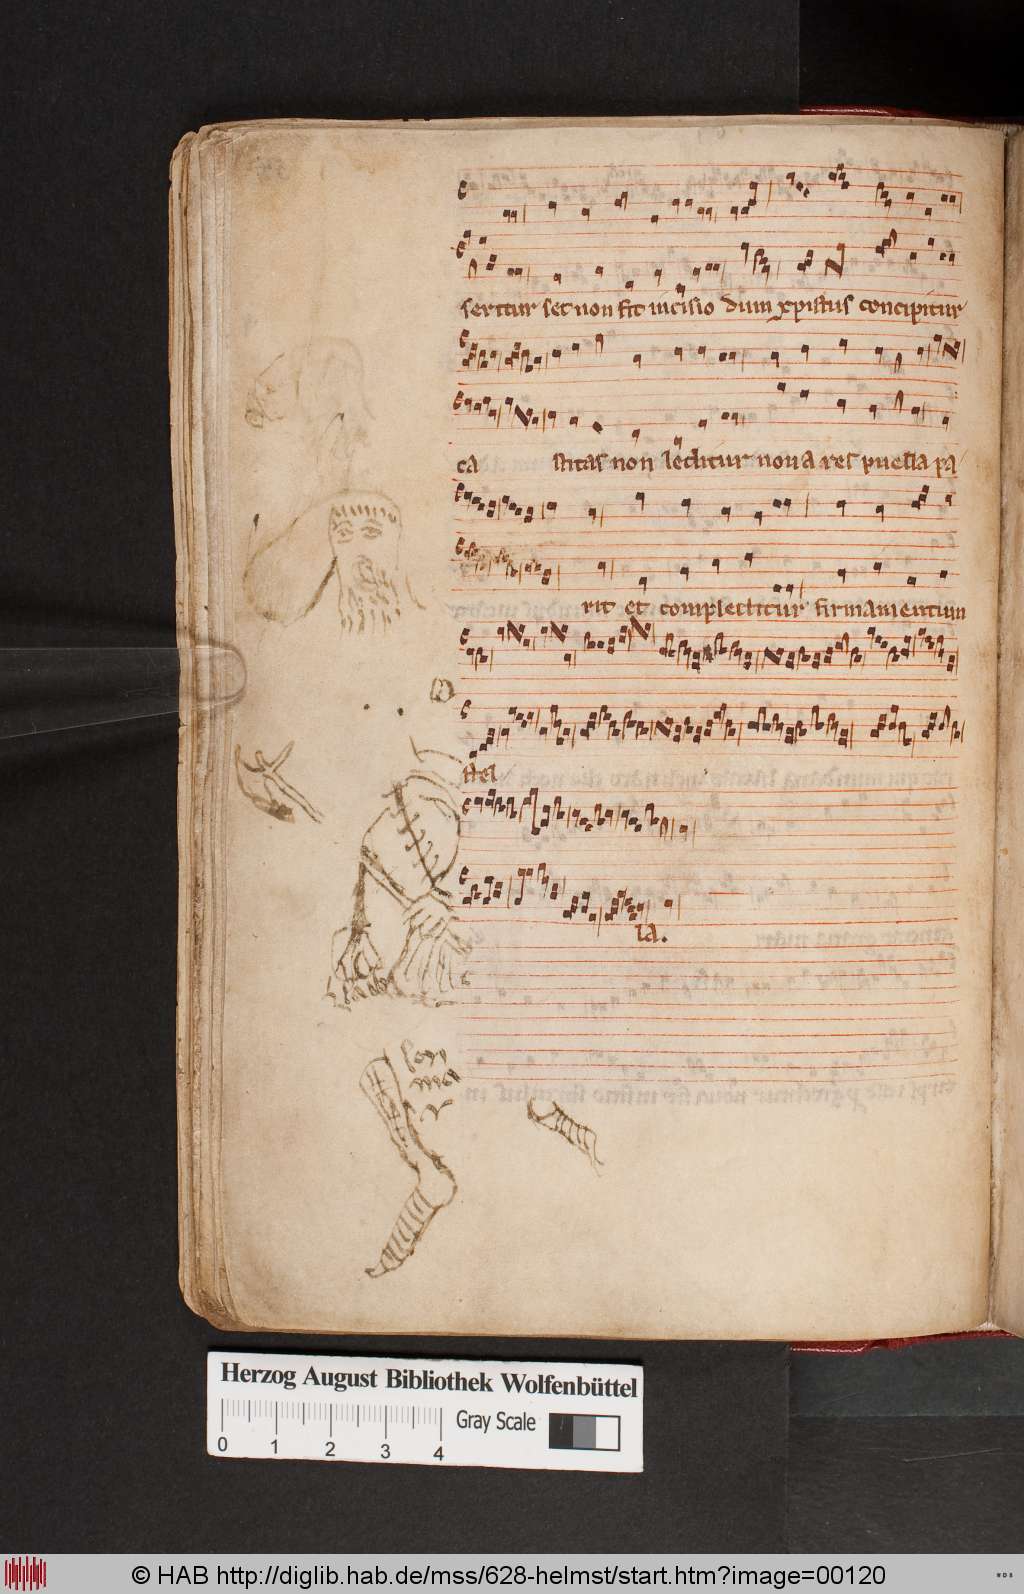 seritur set non fit incisio dum xpistus concipitur
ca stitas non leditur noua res puella pa
rit et complectitur firmamentum
stel
la.
Herzog August Bibliothek Wolfenbüttel
0 1 2 3 4 Gray Scale
© HAB http://diglib.hab.de/mss/628-helmst/start.htm?image=00120